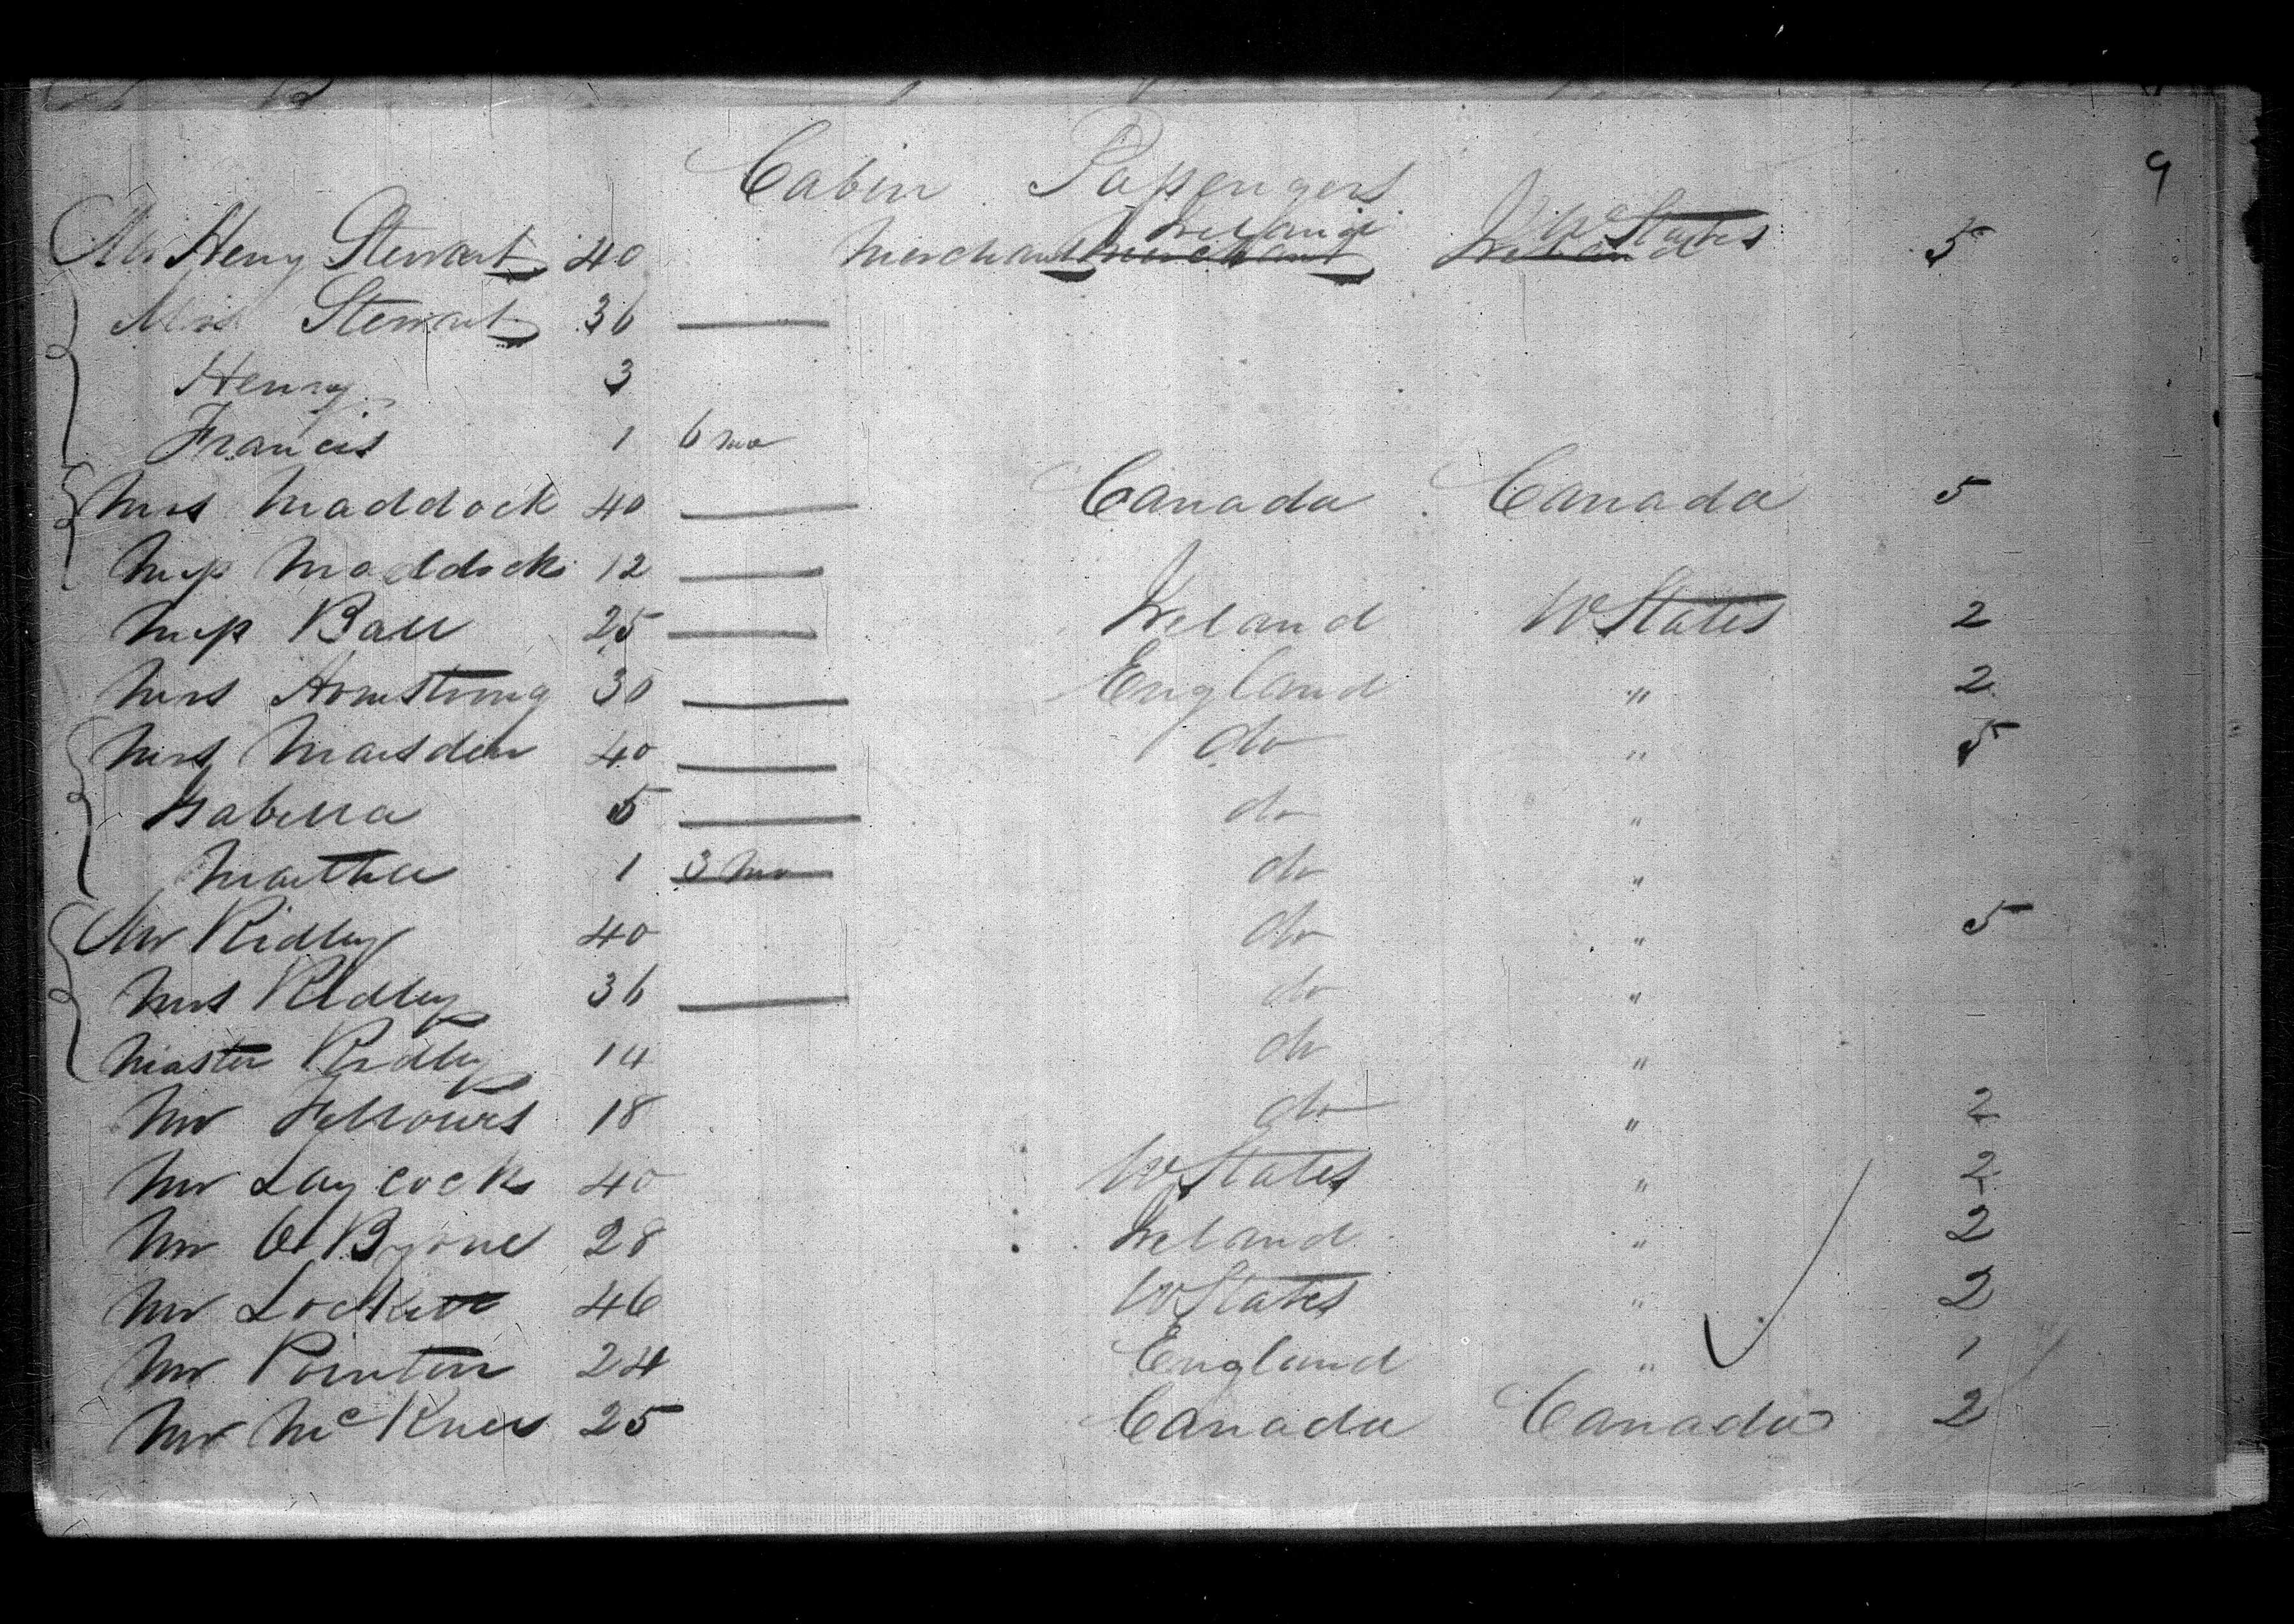 Cabin Passengers
9
Mr Henry Stewart 40 Merchant Merchant Ireland Ireland U States 5
Mrs Stewart 36
Henry 3
Francis 1 6 mo
Mrs Maddock 40 Canada Canada 5
Miss Maddock 12
Miss Ball 25 Ireland U States 2
Mrs Armstrong 30 England " 2
Mrs Marsden 40 do " 5
Isabella 5 do "
Martha 1 3 mo do "
Mr Ridley 40 do " 5
Mrs Ridley 36 do "
Master Ridley 14 do "
Mr Fellowes 18 do " 2
Mr Laycock 40 U States " 2
Mr O'Byrne 28 Ireland " 2
Mr Lockett 46 U States " 2
Mr Pointon 24 England " 1
Mr Mc 25 Canada Canada 2